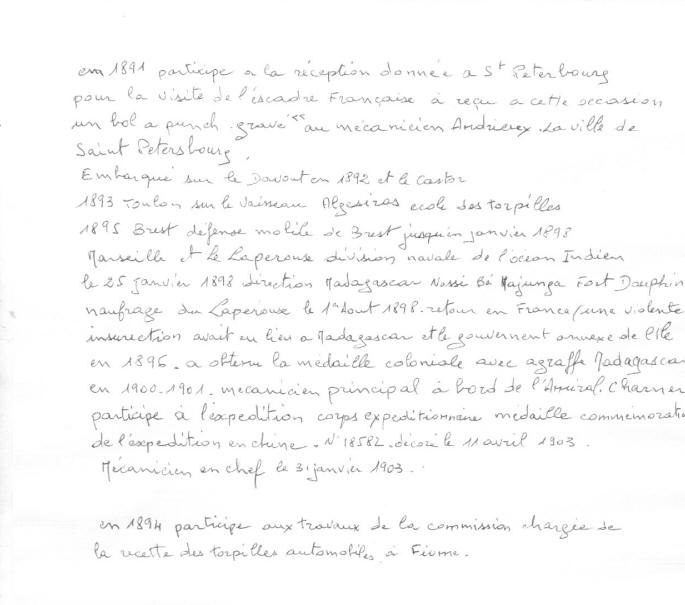 en 1891 participe a la réception donnée a St Peterbourg
pour la visite de l'éscadre Française à reçu a cette occasion
un bol a punch gravé "" au mécanicien Andrieux. La ville de
Saint Petersbourg.
Embarqué sur le Davout en 1892 et le Castor
1893 Toulon sur le Vaisseau Algésiras ecole des torpilles
1895 Brest défense mobile de Brest jusqu'in janvier 1898
Marseille et Le Laperouse division navale de l'océan Indien
le 25 janvier 1898 direction Madagascar Nossi Bé Majunga Fort Dauphin
naufrage du Laperouse le 1er Aout 1898. retour en France/une violente
insurection avait eu lieu a Madagascar et le gouvernent annexe de l'Ile
en 1896. a obtenu la médaille coloniale avec agraffe Madagascar
en 1900-1901. mecanicien principal à bord de l'Amiral. Charner
participe à l'expedition corps expeditionnaire médaille commémorat
de l'éxpedition en chine. N° 18582. décoré le 11 avril 1903.
Mécanicien en chef le 31 janvier 1903..
en 1894 participe aux travaux de la commission chargée de
la recette des torpilles automobiles à Fiume.